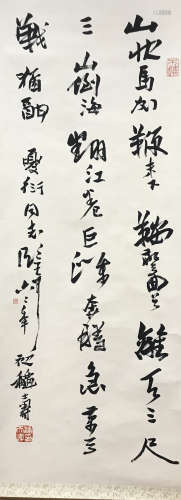 山快馬加鞭未下鞍驚回首離天三尺
三山倒海翻江卷巨瀾奔騰急萬馬
戰猶酣 夏衍同志